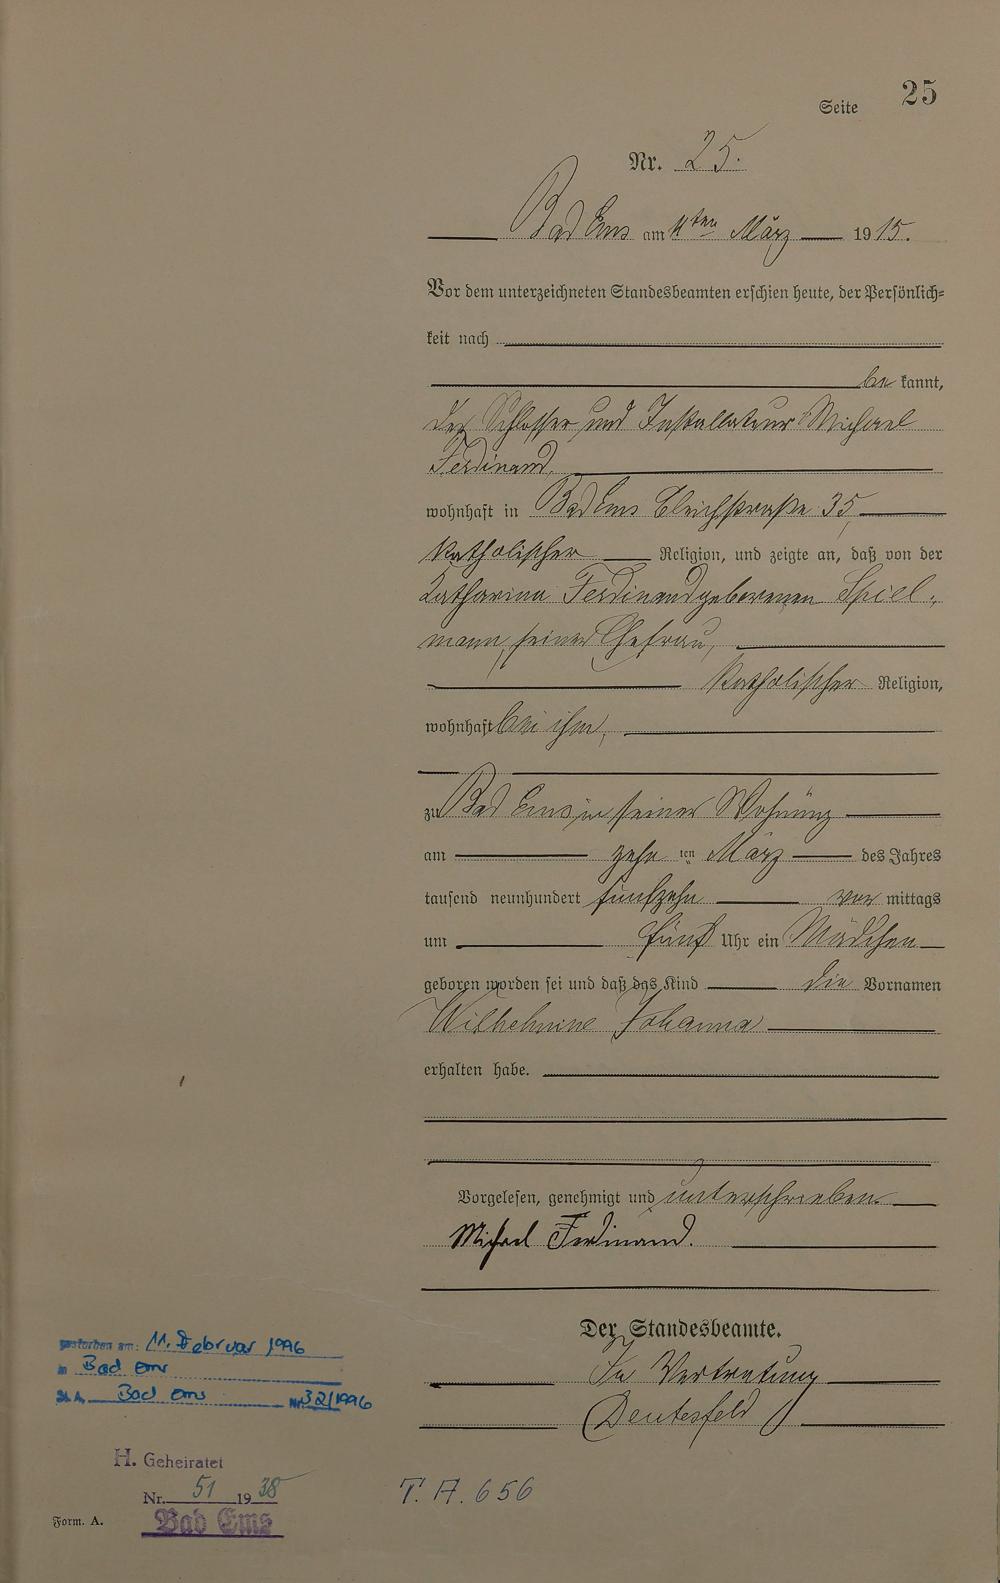 Seite 25
Nr. 25.
Bad Ems am 11ten März 1915.
Vor dem unterzeichneten Standesbeamten erschien heute, der Persönlich=
keit nach
be kannt,
der Schlosser und Installateur Michael
Ferdinand,
wohnhaft in Bad Ems Bleichstraße 35,
katholischer Religion, und zeigte an, daß von der
Katharina Ferdinand geborenen Spiel-
mann, seiner Ehefrau,
katholischer Religion,
wohnhaft bei ihm,
zu Bad Ems in seiner Wohnung
am zehn ten März des Jahres
tausend neunhundert fünfzehn vor mittags
um fünf Uhr ein Mädchen
geboren worden sei und daß das Kind die Vornamen
Wilhelmine Johanna
erhalten habe.
Vorgelesen, genehmigt und unterschrieben
Michael Ferdinand.
Der Standesbeamte.
In Vertretung
Deutesfeld
gestorben am: 11. Februar 1996
in Bad Ems
St. A. Bad Ems Nr. 32/1996
H. Geheiratet
Nr. 51 1938
Bad Ems
T. A. 656
Form. A.